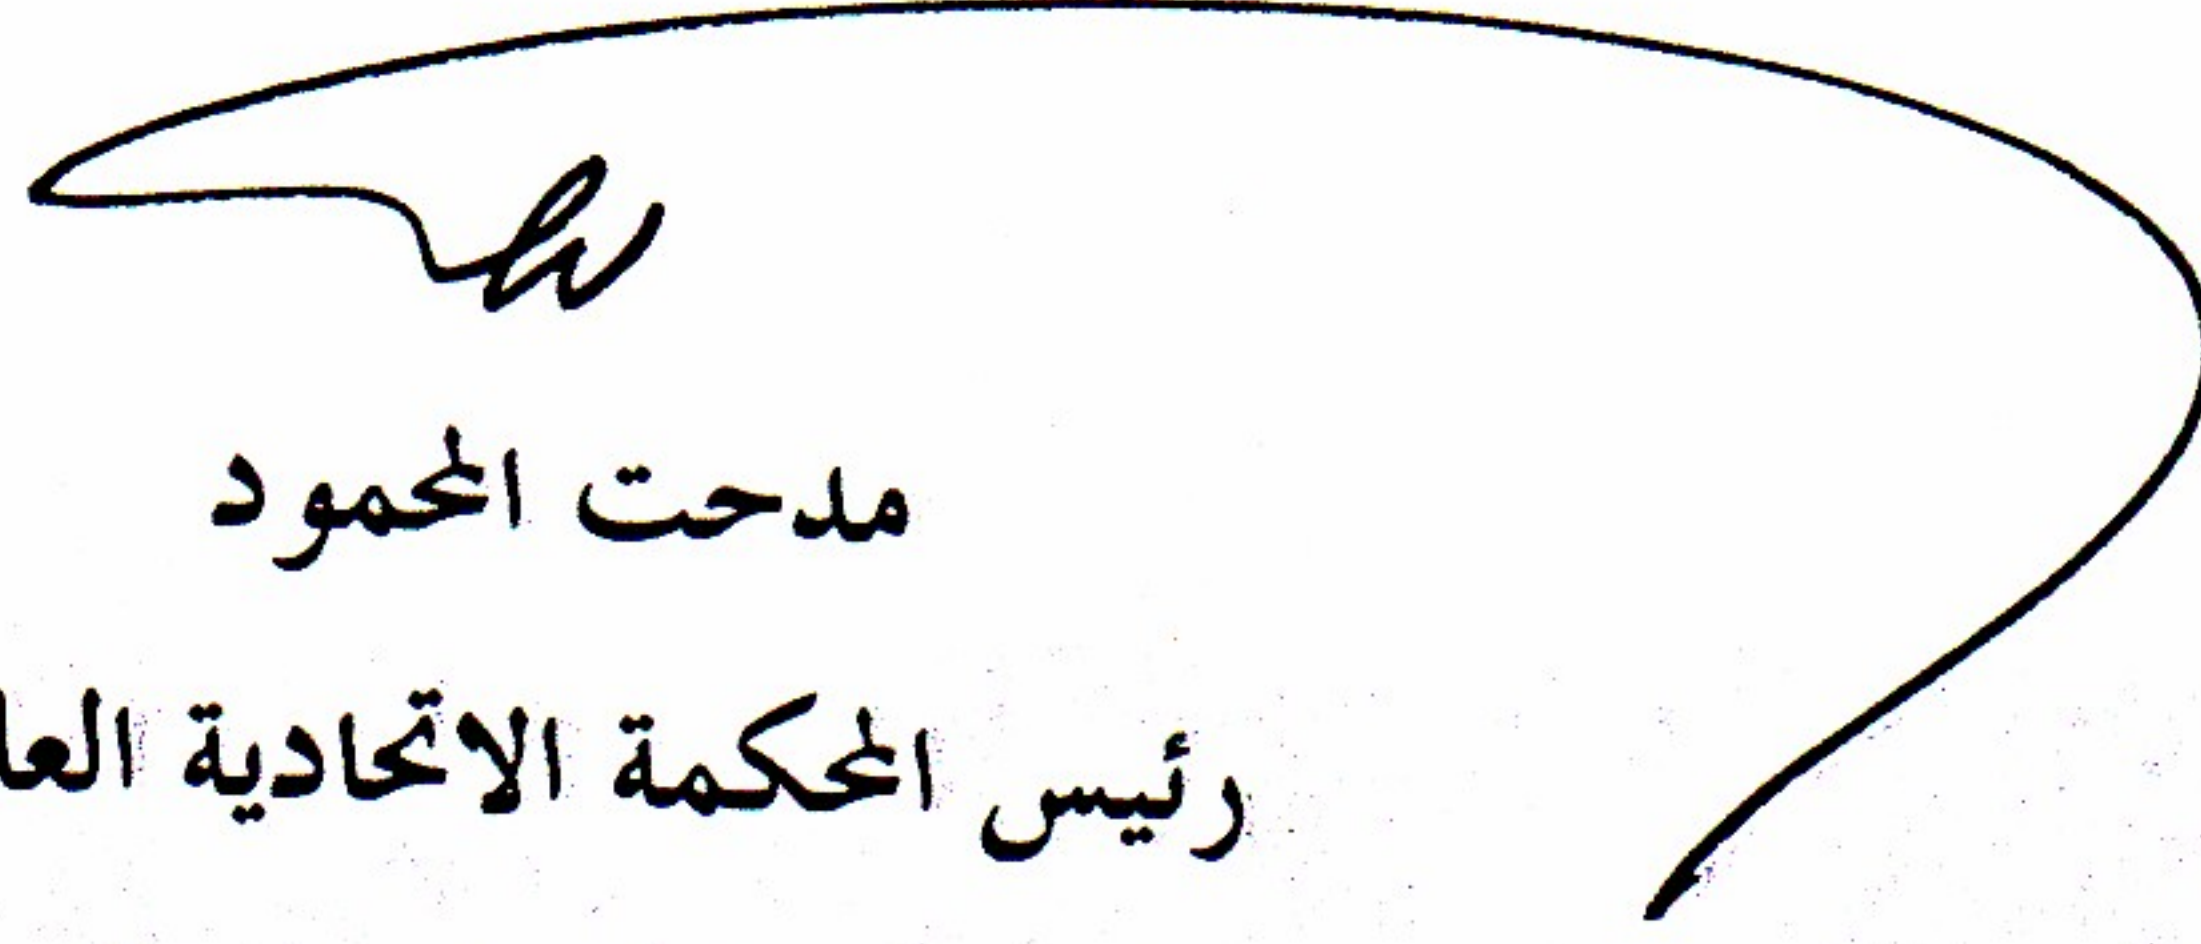 مدحت المحمود
رئيس المحكمة الاتحادية العا